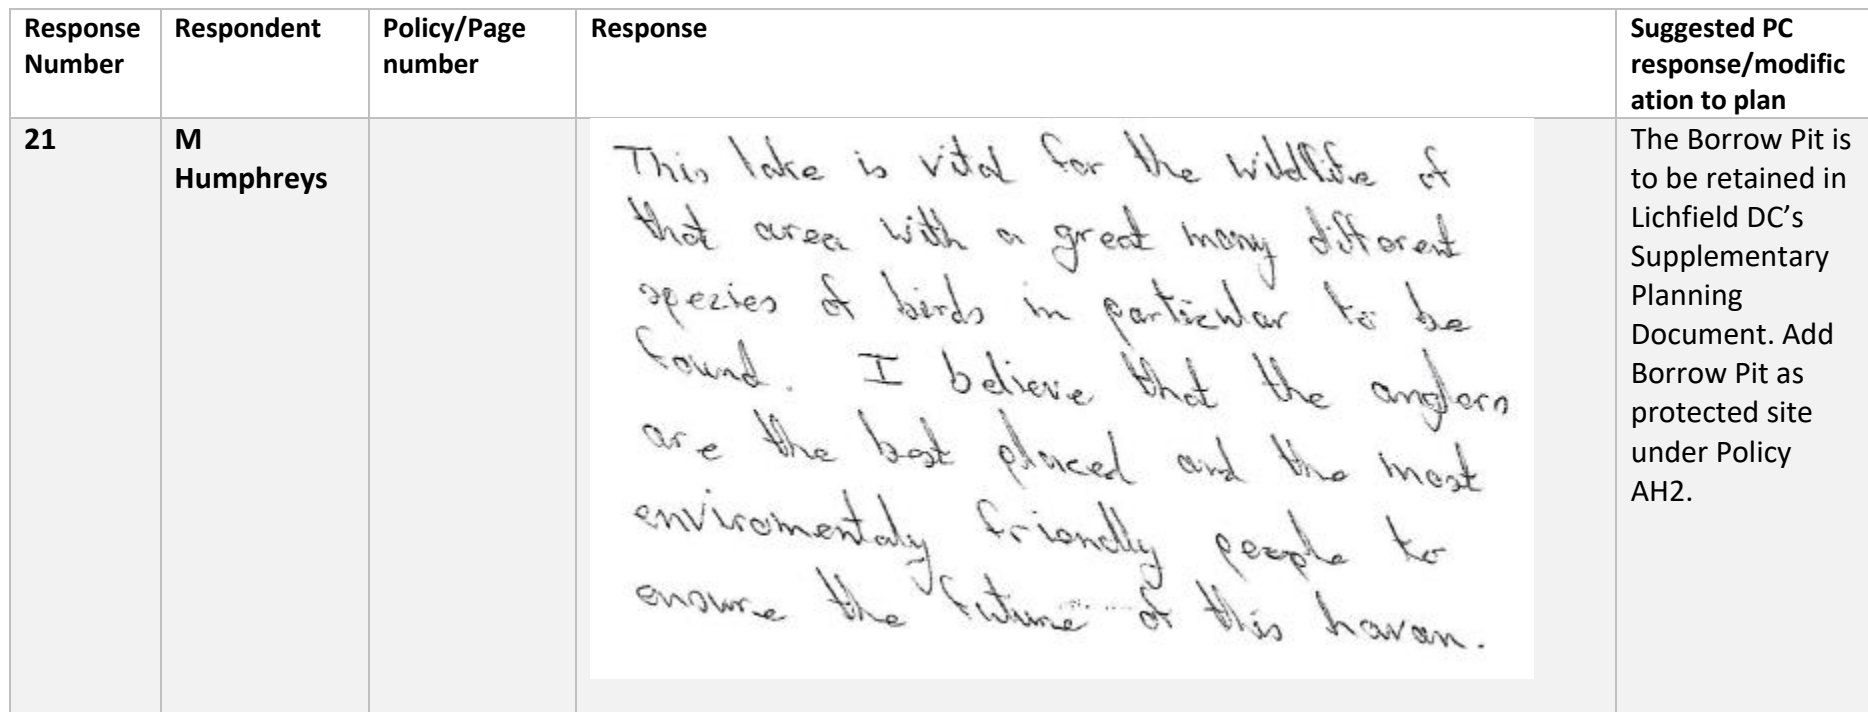 Response Number
Respondent
Policy/Page number
Response
Suggested PC response/modific
ation to plan
21
M
Humphreys
This lake is vital for the wildlife of
that area with a great many different
species of birds in particular to be
found. I believe that the anglers
are the best placed and the most
enviromentaly friendly people to
ensure the future of this havan.
The Borrow Pit is
to be retained in
Lichfield DC's
Supplementary
Planning
Document. Add
Borrow Pit as
protected site
under Policy
AH2.